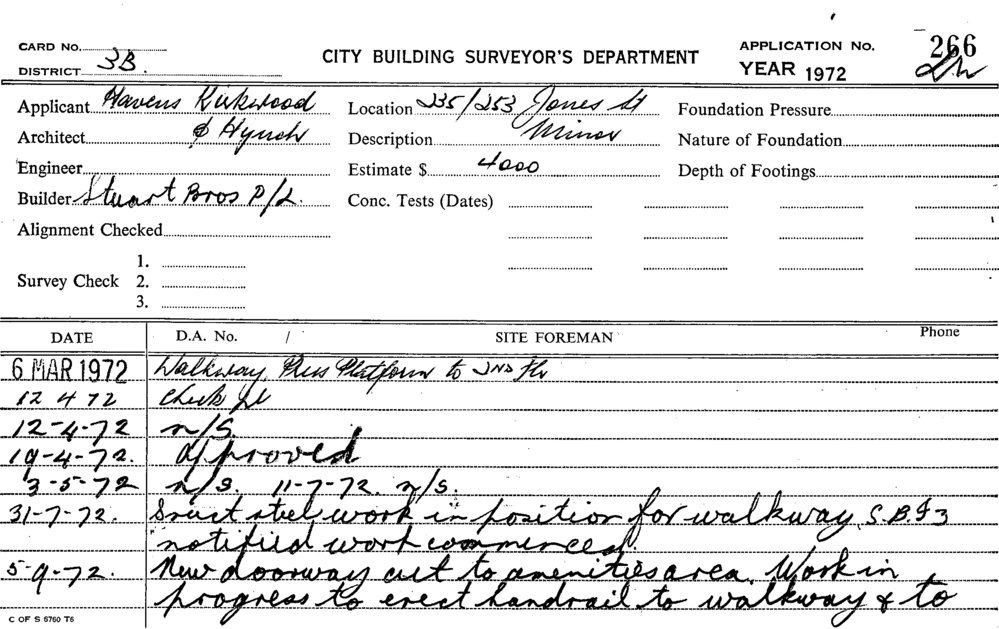 CARD No.
DISTRICT 3B.
CITY BUILDING SURVEYOR'S DEPARTMENT
APPLICATION No. 266
YEAR 1972
Applicant Havens Kirkwood
Architect & Hynch
Engineer
Builder Stuart Bros P/L.
Alignment Checked
Survey Check 1.
2.
3.
Location 235/253 Jones St
Description Minor
Estimate $ 4000
Conc. Tests (Dates)
Foundation Pressure
Nature of Foundation
Depth of Footings
DATE D.A. No. / SITE FOREMAN Phone
6 MAR 1972 Walkway Plus Platform to 2ND Flr
12 4 72 Check
12-4-72 n/S.
19-4-72. approved
3-5-72 n/S. 11-7-72. n/S.
31-7-72. steel work in position for walkway. S.B.I 3
notified work commenced.
5-9-72. New doorway cut to amenities area. Work in
progress to erect handrail to walkway & to
C OF S 6760 T6